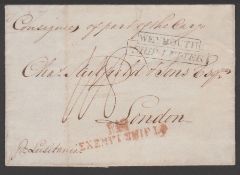 Consignees of part of the Cargo
WEYMOUTH
SHIP LETTER
Cha.s
& Sons Esq.rs
London
EXEMPT SHIP L
Pr. Lusitania